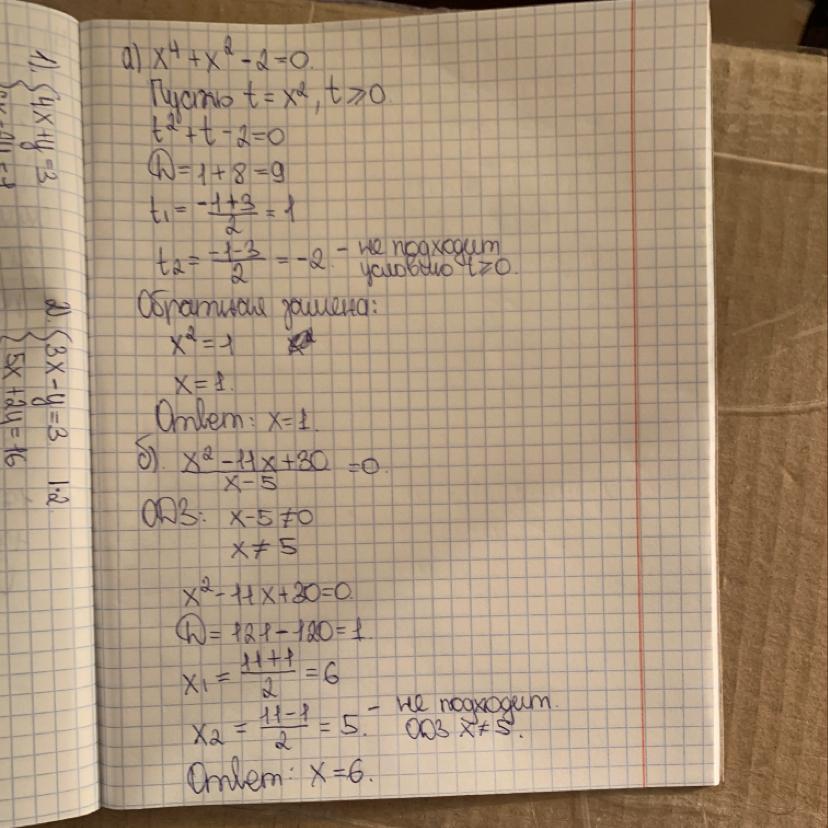 а) x⁴ + x² - 2 = 0.
Пусть t = x², t ⩾ 0
t² + t - 2 = 0
D = 1 + 8 = 9
t₁ = (-1+3)/2 = 1
t₂ = (-1-3)/2 = -2. - не подходит
условию t ⩾ 0.
Обратная замена:
x² = 1
x = 1.
Ответ: x = 1.
б). (x² - 11x + 30)/(x - 5) = 0.
ОДЗ: x - 5 ≠ 0
x ≠ 5
x² - 11x + 30 = 0.
D = 121 - 120 = 1.
x₁ = (11+1)/2 = 6
x₂ = (11-1)/2 = 5. - не подходит.
ОДЗ x ≠ 5.
Ответ: x = 6.
1). { 4x + y = 3
2). { 3x - y = 3 | ·2
5x + 2y = 16